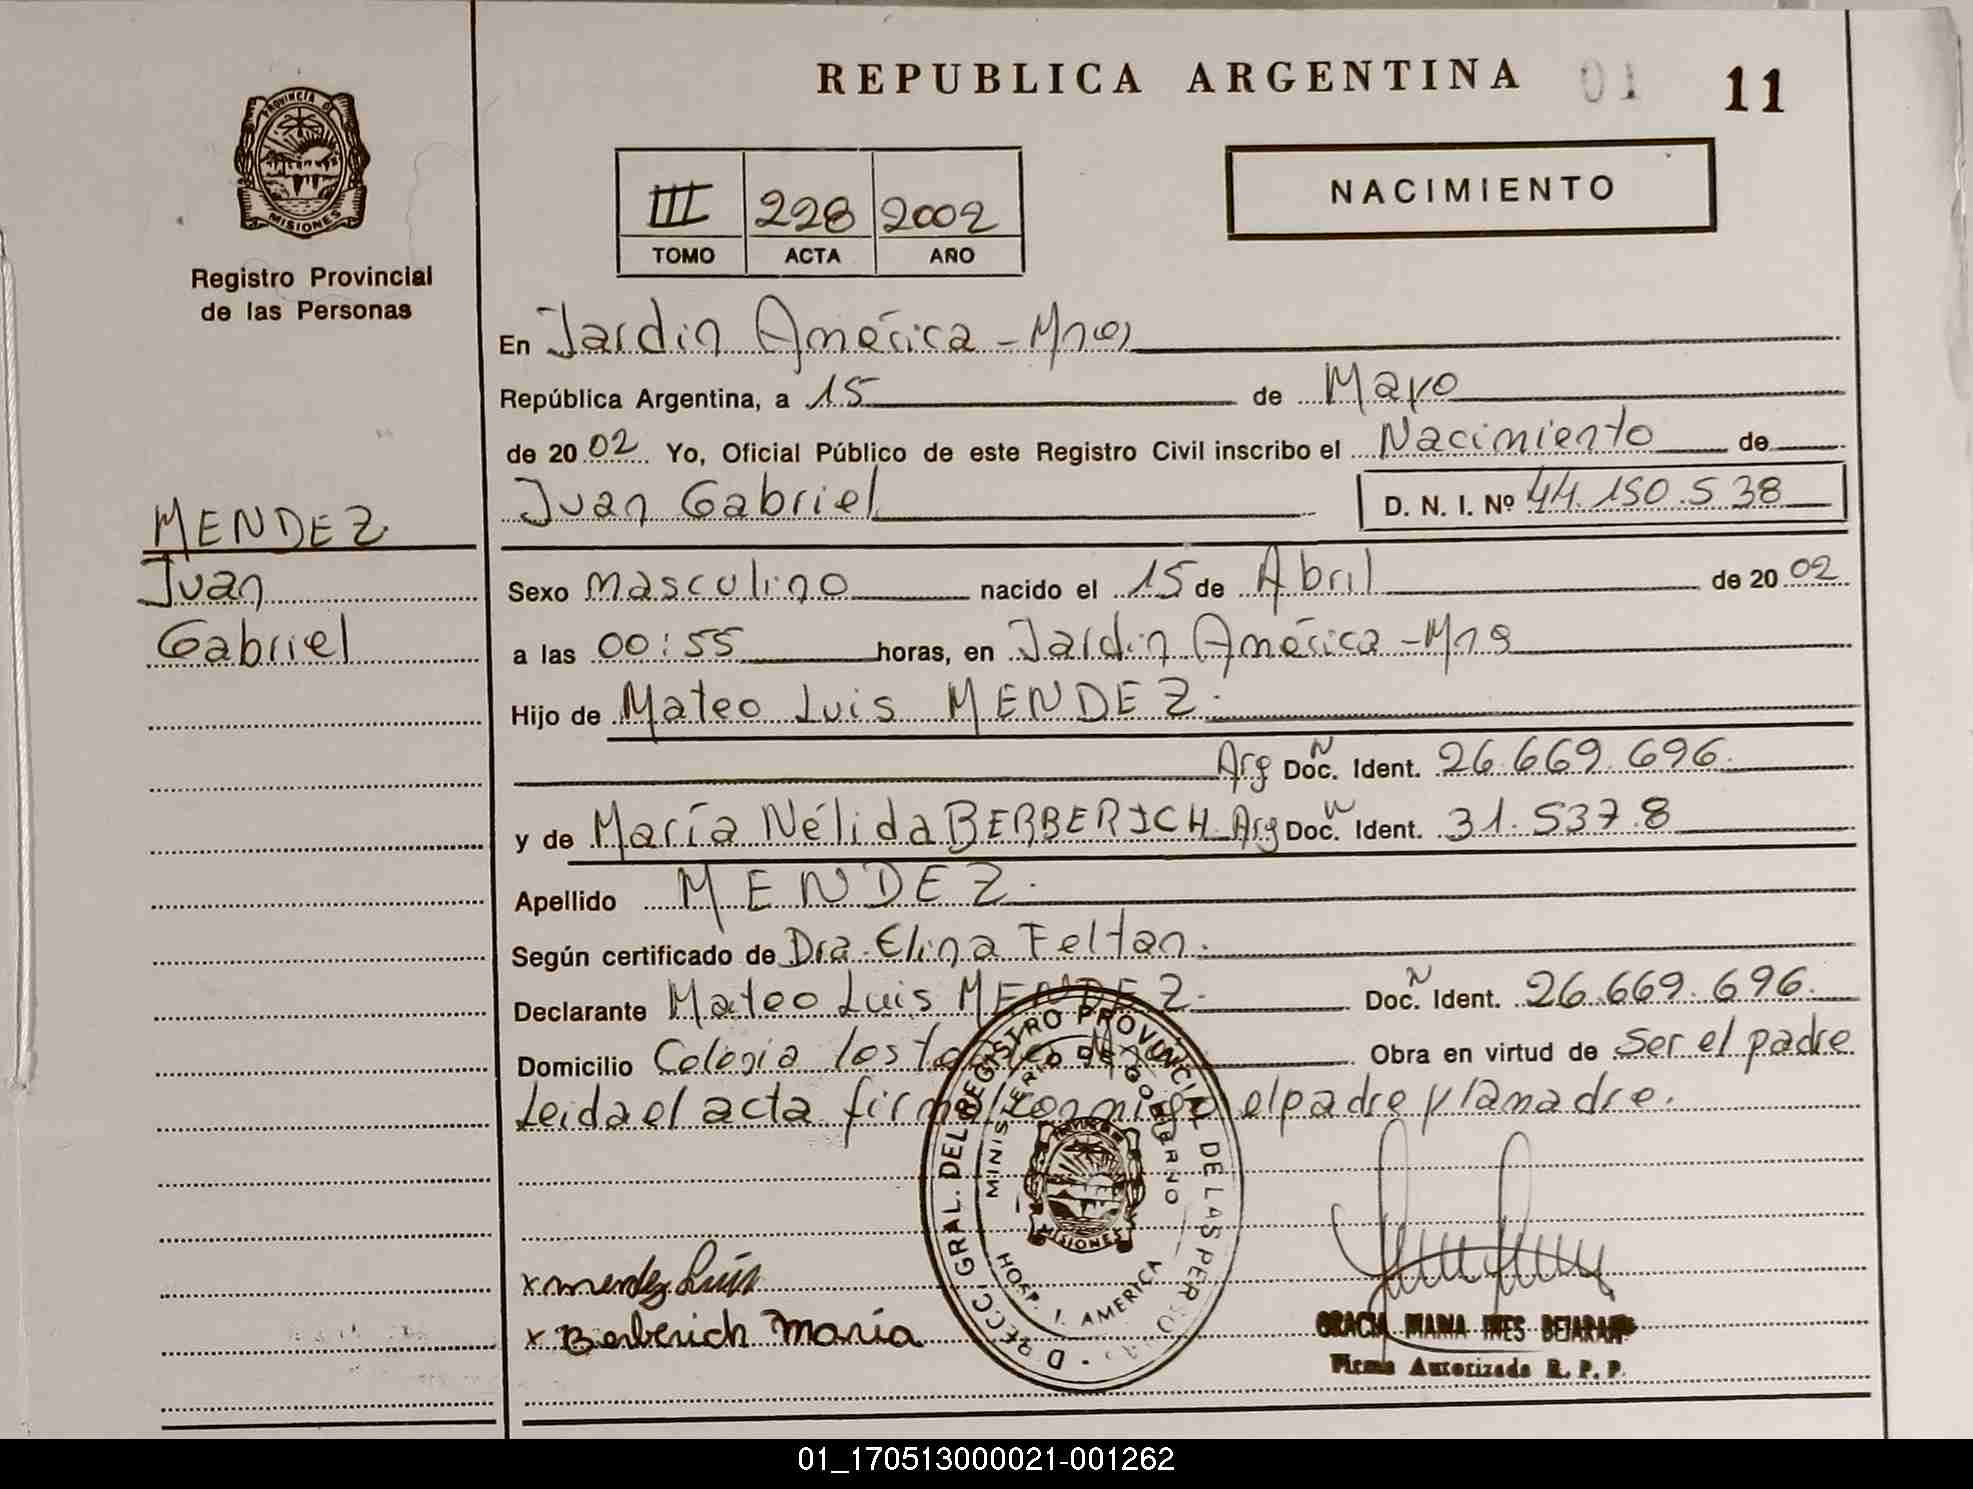 REPUBLICA ARGENTINA 01 11
PROVINCIA DE
MISIONES
Registro Provincial
de las Personas
NACIMIENTO
III 228 2002
TOMO ACTA AÑO
En Jardin América - Mnes
República Argentina, a 15 de Mayo
de 2002 Yo, Oficial Público de este Registro Civil inscribo el Nacimiento de
Juan Gabriel D. N. I. Nº 44.150.538
MENDEZ
Juan
Gabriel
Sexo masculino nacido el 15 de Abril de 2002
a las 00:55 horas, en Jardin América - Mns
Hijo de Mateo Luis MENDEZ.
Arg Doc. N Ident. 26.669.696.
y de María Nélida BERBERICH Arg Doc. N Ident. 31.537.8
Apellido MENDEZ.
Según certificado de Dra. Elina Feltan.
Declarante Mateo Luis MENDEZ. Doc. N Ident. 26.669.696.
Domicilio Colonia los Obra en virtud de ser el padre
Leida el acta firma conmigo el padre y la madre.
DIRECC. GRAL. DEL REGISTRO PROVINCIAL DE LAS PERSONAS
MINISTERIO DE GOBIERNO
MISIONES
HOSP. J. AMERICA
x mendez Luis
x Berberich maria
GRACIA MARIA INES BEJARANO
Firma Autorizada R. P. P.
01_170513000021-001262